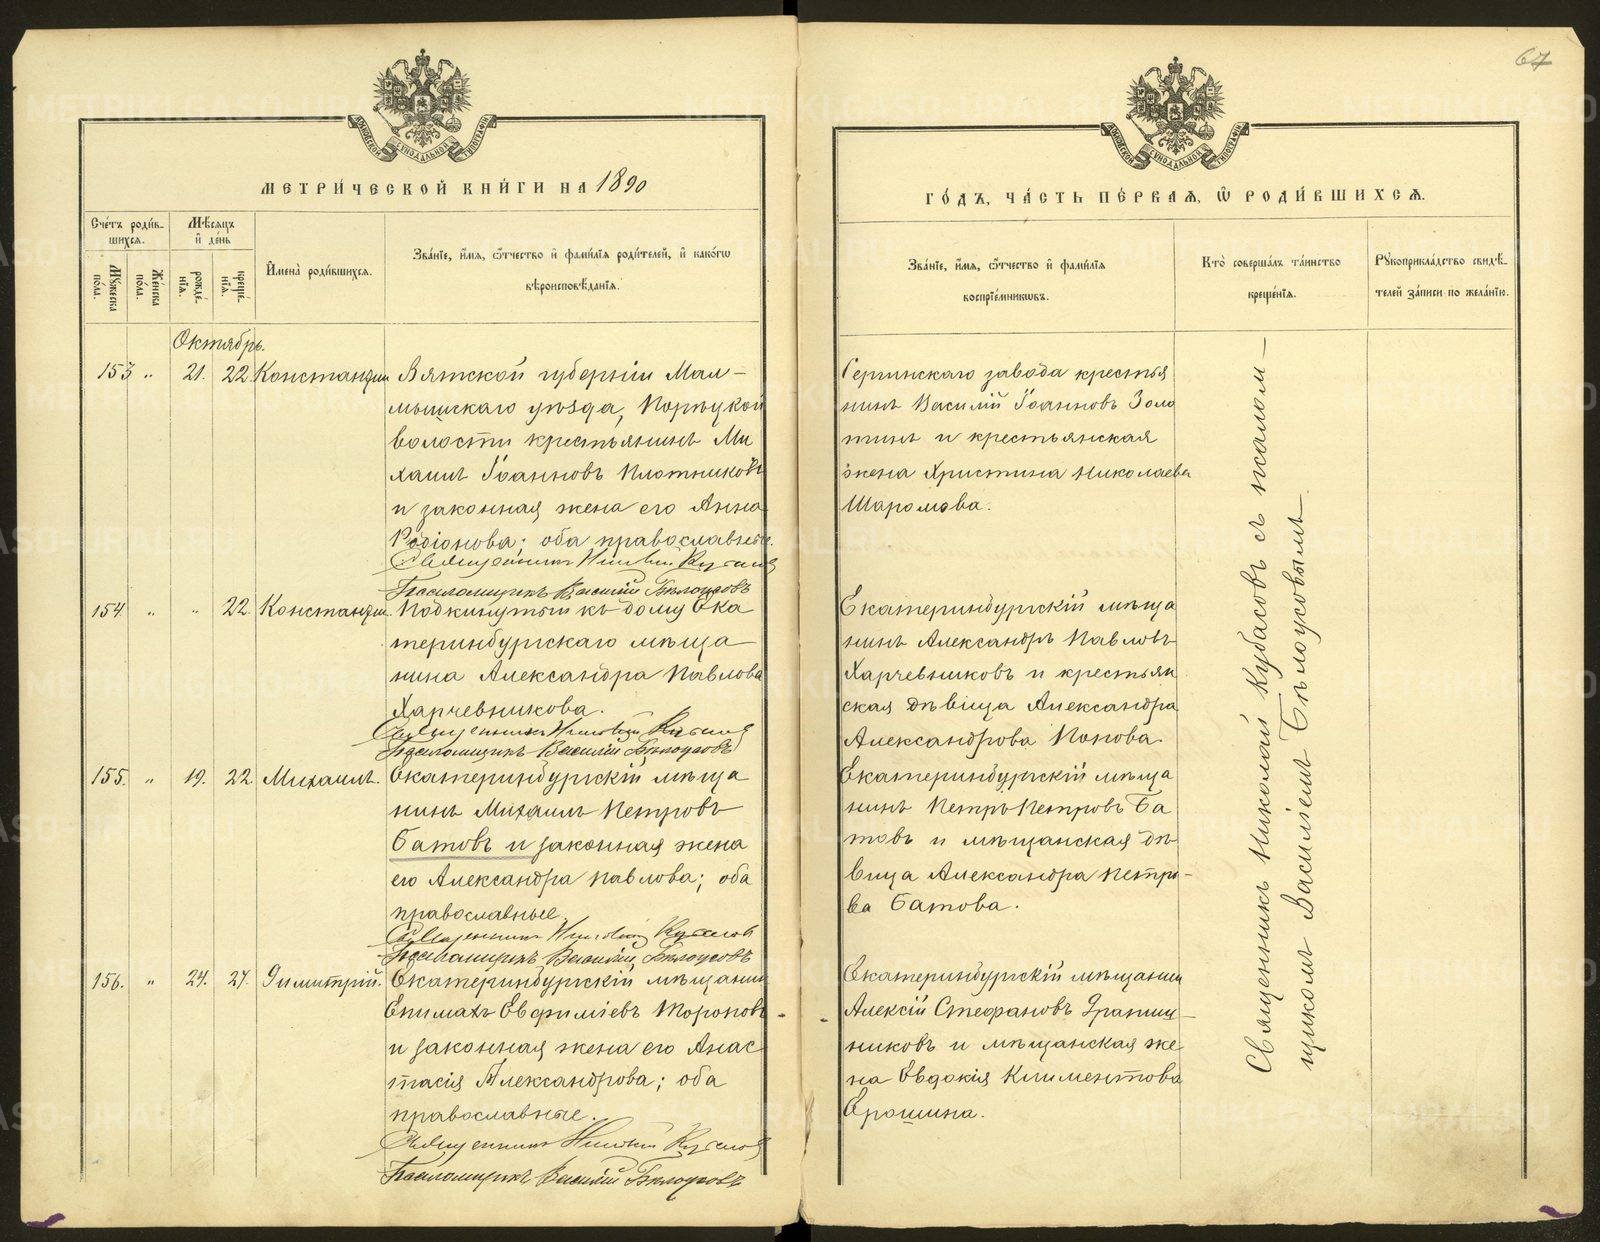 67
МОСКОВСКОЙ СѴНОДАЛЬНОЙ ТИПОГРАФІИ
МЕТРИ́ЧЕСКОЙ КНИ́ГИ НА 1890
Сче́тъ роди́в-
шихсѧ.
Мѣ́сѧцъ
и҆ де́нь
Мꙋ́жеска
по́ла.
Же́нска
по́ла.
рожде́-
нїѧ.
креще́-
нїѧ.
И҆мена̀ роди́вшихсѧ.
Зва́нїе, и҆́мѧ, ѻ҆́тчество и҆ фами́лїѧ роди́телей, и҆ како́гѡ
вѣроисповѣ́данїѧ.
Октябрь.
153 „ 21. 22 Константин
Вятской губерніи Мал-
мышскаго уѣзда, Порѣцкой
волости крестьянинъ Ми
хаилъ Іоанновъ Плотниковъ
и законная жена его Анна
Родіонова; оба православные.
Священникъ Николай Кубасов
Псаломщикъ Василій Бѣлоусовъ
154. „ „ 22. Константин.
Подкинутый къ дому Ека
теринбургскаго мѣща
нина Александра Павлова
Харчевникова.
Священникъ Николай Кубасов
Псаломщикъ Василій Бѣлоусовъ
155. „ 19. 22. Михаилъ.
Екатеринбургскій мѣща
нинъ Михаилъ Петровъ
Батовъ и законная жена
его Александра Павлова; оба
православные.
Священникъ Николай Кубасов
Псаломщикъ Василій Бѣлоусовъ
156. „ 24. 27. Димитрій.
Екатеринбургскій мѣщанин
Епимахъ Евфиміевъ Торопов
и законная жена его Анас
тасія Александрова; оба
православные.
Священникъ Николай Кубасов
Псаломщикъ Василій Бѣлоусовъ
МОСКОВСКОЙ СѴНОДАЛЬНОЙ ТИПОГРАФІИ
ГО́ДЪ, ЧА́СТЬ ПЕ́РВАѦ, Ѡ҆ РОДИ́ВШИХСѦ.
Зва́нїе, и҆́мѧ, ѻ҆́тчество и҆ фами́лїѧ
воспрїе́мникѡвъ.
Кто̀ соверша́лъ та́инство
креще́нїѧ.
Рꙋкоприкла́дство свидѣ́-
телей за́писи по жела́нїю.
Сергинскаго завода крестья
нинъ Василій Іоанновъ Золо
тинъ и крестьянская
жена Христина Николаева
Шаромова.
Екатеринбургскій мѣща
нинъ Александръ Павловъ
Харчевниковъ и крестьян
ская дѣвица Александра
Александрова Попова.
Екатеринбургскій мѣща
нинъ Петръ Петровъ Ба
товъ и мѣщанская дѣ
вица Александра Петро-
ва Батова.
Екатеринбургскій мѣщанин
Алексій Стефановъ
никовъ и мѣщанская же
на Евдокія Климентова
Ерошина.
Священникъ Николай Кубасовъ съ псалом-
щикомъ Василіемъ Бѣлоусовымъ
METRIKI.GASO-URAL.RU